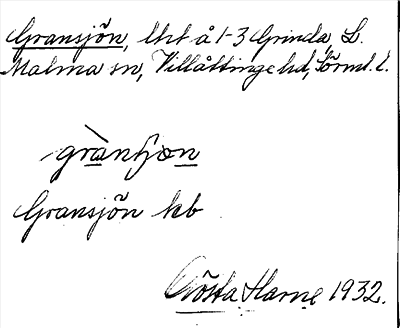 Gransjön, lht å 1-3 Grinda, L.
Malma sn, Villåttinge hd, Sörml. l.
grànʃjon
Gransjön kb
Gösta Harne 1932.